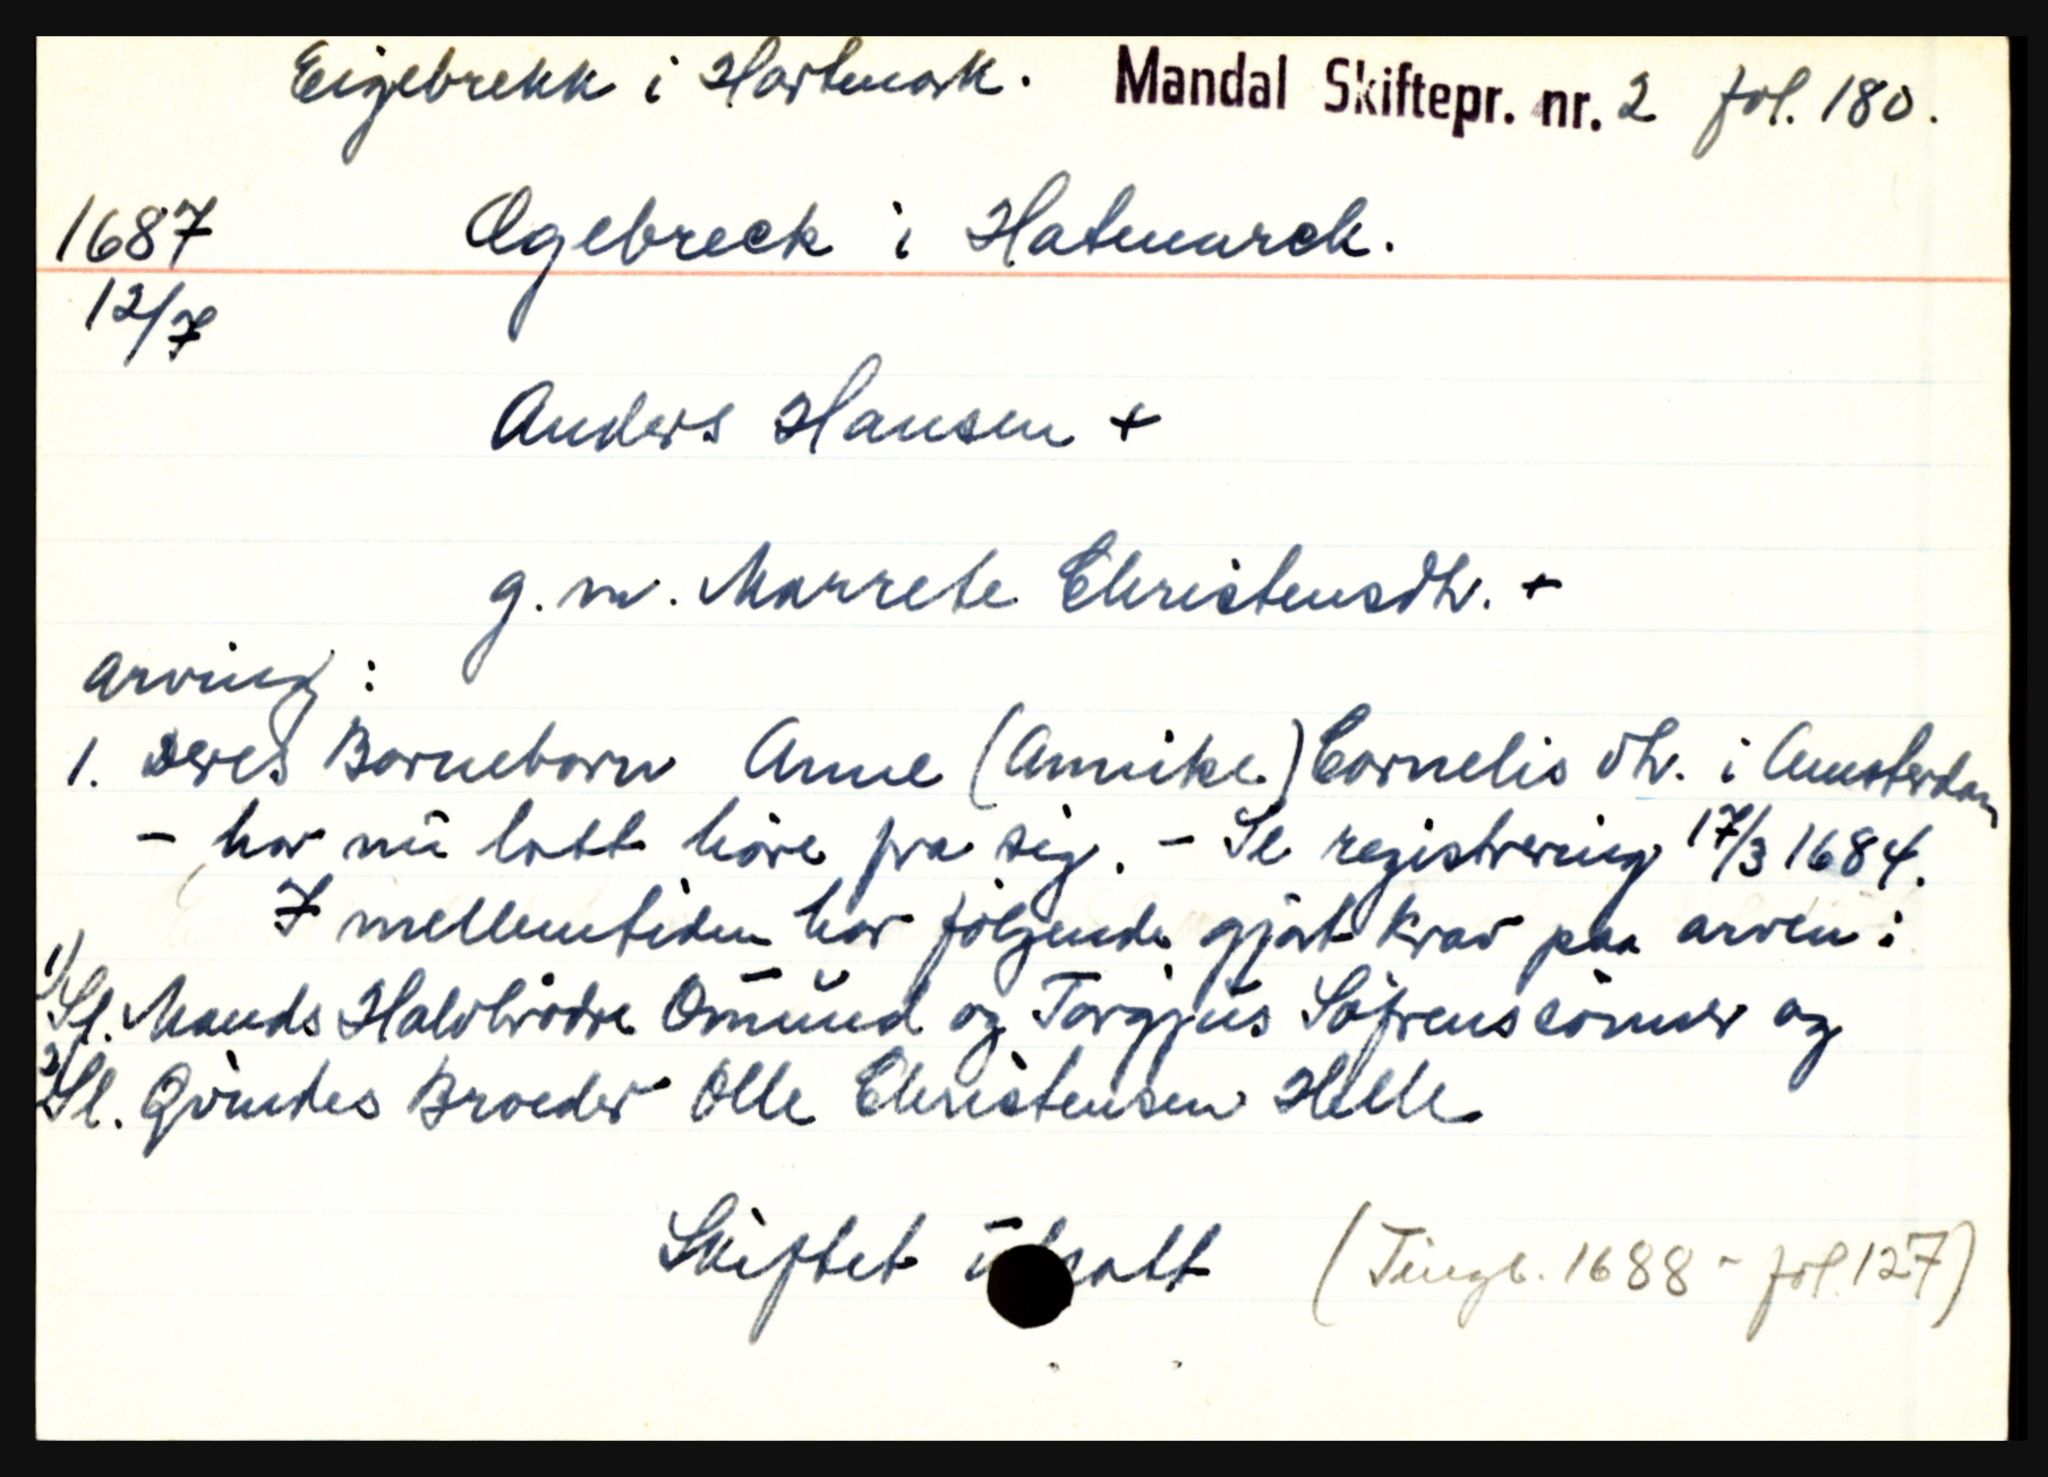 Eigebrekk i Hartmark. Mandal Skiftepr. nr. 2 fol. 180.
1687 Ægebreck i Hatmarck.
12/7
Anders Hansen +
g. m. Marrete Christensdtr. +
arving:
1. Deres Barnebarn Anne (Annike) Cornelis dtr. i Amsterdam
- har nū latt høre fra sig. - Se registrering 17/3 1684.
I mellemtiden har følgende gjort krav paa arven:
1) Sl. Mands Halvbrødre Omūnd og Torgjūs Søfrensönner og
2) Sl. Qvindes Broeder Olle Christensen Helle
Skiftet ūtsatt (Tingb. 1688 - fol. 127)